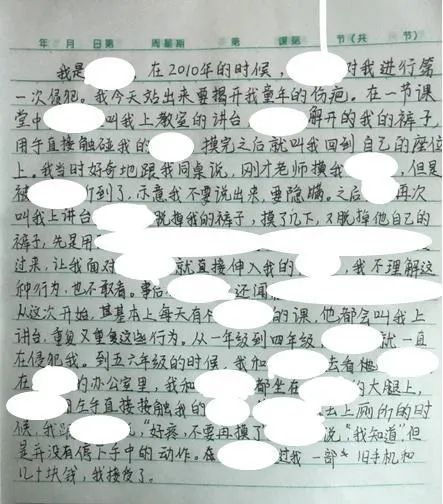 年 月 日第 周星期 第 课第 节(共 节)
我是 ，在2010年的时候， 对我进行第
一次侵犯。我今天站出来要揭开我童年的伤疤。在一节课
堂中 叫我上教室的讲台 解开的我的裤子，
用手直接触碰我的 摸完之后就叫我回到自己的座位
上。我当时好奇地跟我同桌说，刚才老师摸我 ，但是
被 听到了，示意我不要说出来，要隐瞒。之后 再次
叫我上讲台 脱掉我的裤子，摸了几下，又脱掉他自己的
裤子，先是用
过来，让我面对 就直接伸入我的 ，我不理解这
种行为，也不敢看。事后 还闻
从这次开始，其基本上每天有 的课，他都会叫我上
讲台，重复又重复这些行为。从一年级到四年级 就一直
在侵犯我。到五六年级的时候，我和 去看
在 的办公室里，我和 都坐在 的大腿上，
用左手直接接触我的 出上厕所的时
候，我 “好疼，不要再摸了 说，“我知道”但
是并没有停下手中的动作。在 过我一部 旧手机和
几十块钱，我接受了。